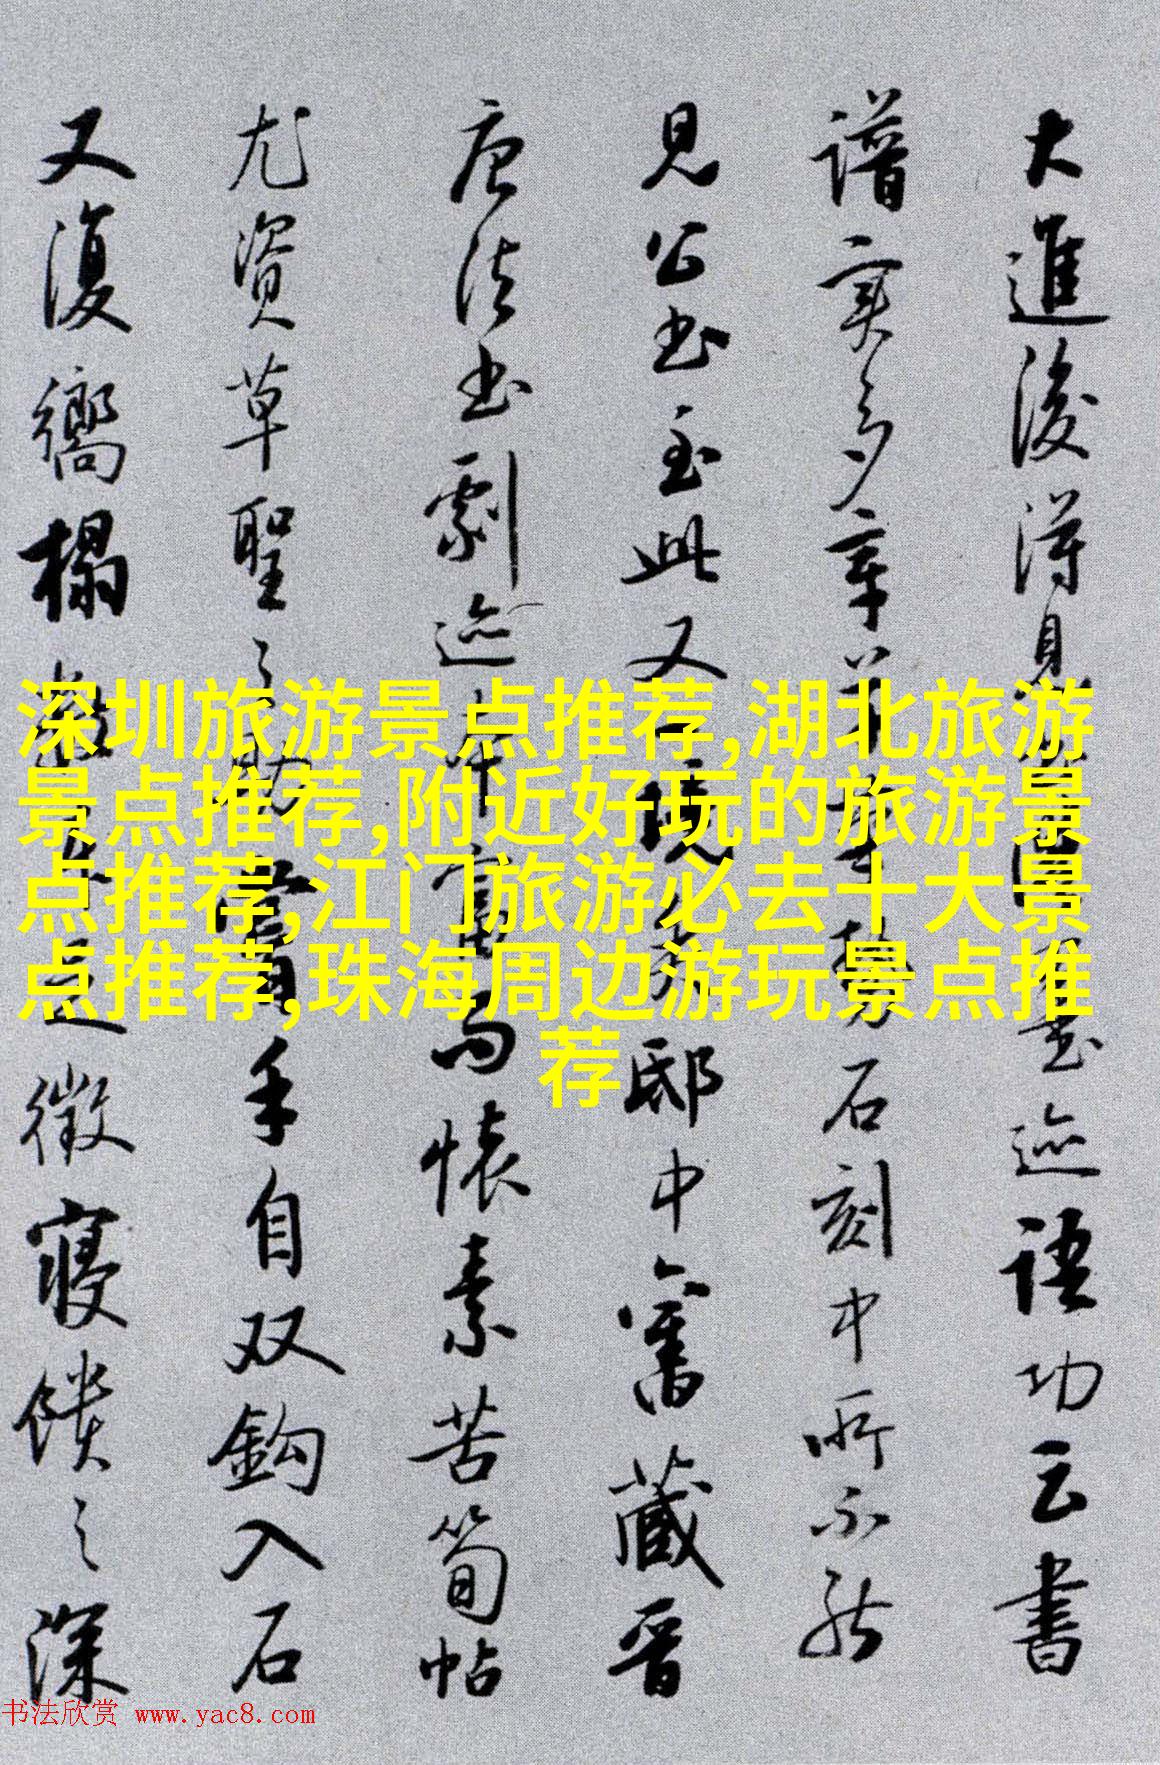 大進後得見
譜實多年
見公書至此又
唐法書劇迹
尤資草聖之助
又復嚮榻
深圳旅游景点推荐,湖北旅游
景点推荐,附近好玩的旅游景
点推荐,江门旅游必去十大景
点推荐,珠海周边游玩景点推
荐
迹語功云書
石刻中所不能
邸中舊藏晉
懷素苦筍帖
手自双鈎入石
徵寢饋之深
书法欣赏 www.yac8.com